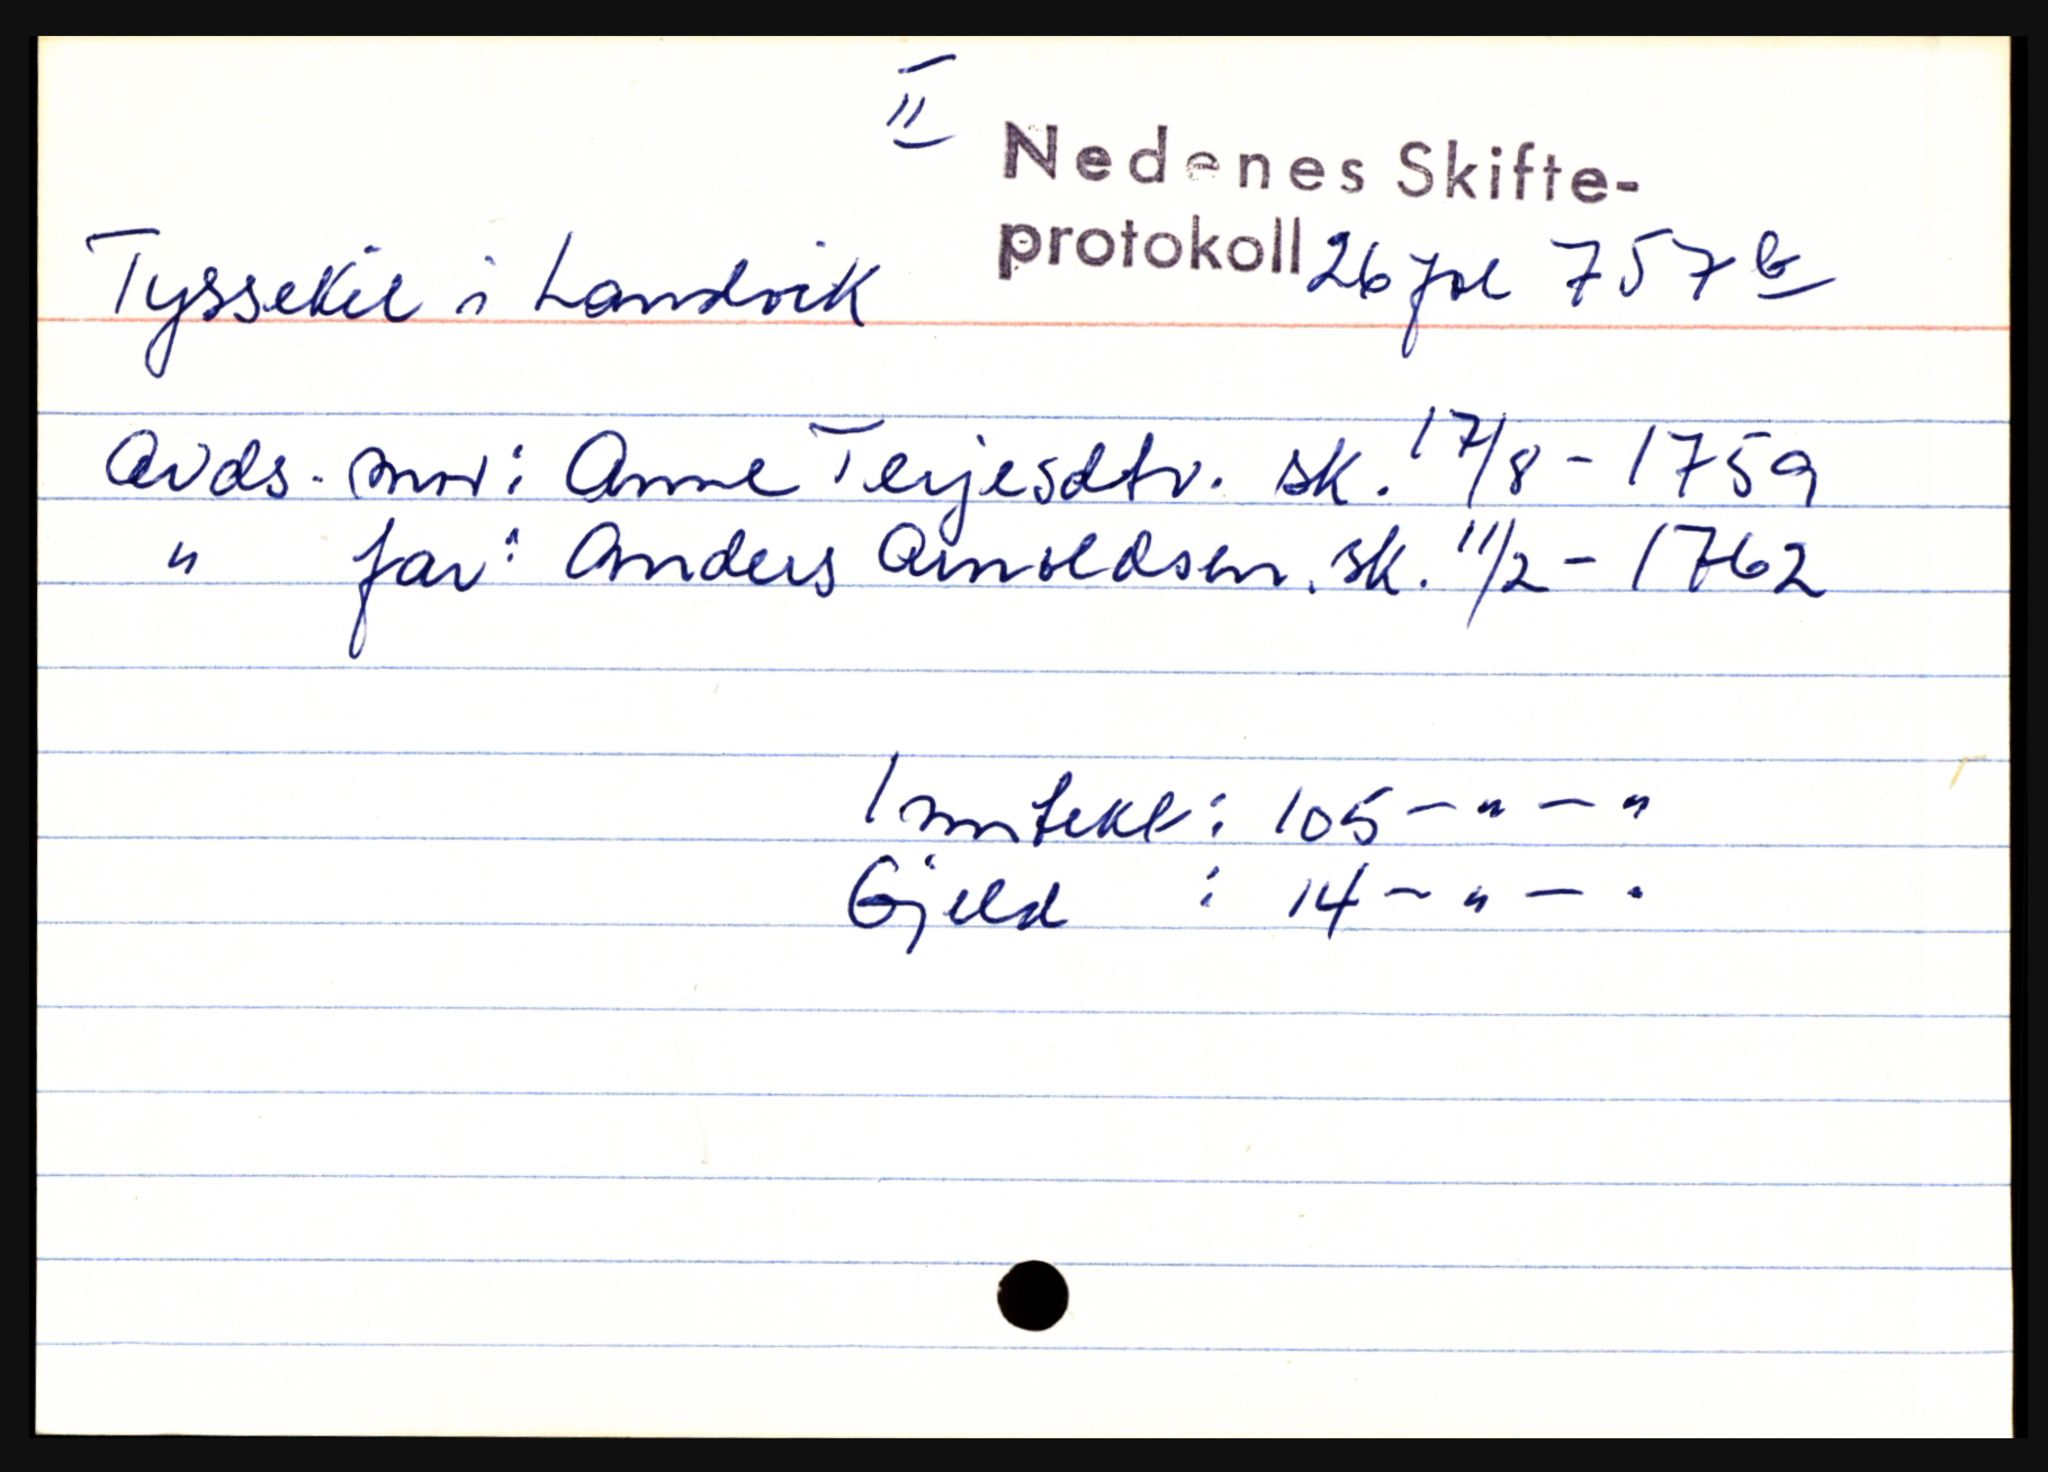 II
Nedenes Skifte-
protokoll 26 fol 757 b
Tyssekil i Landvik
Avds. mor: Anne Terjesdtr. sk. 17/8 - 1759
" far: Anders Arnoldsen. sk. 11/2 - 1762
Inntekt: 105 - " - "
Gjeld : 14 - " - "